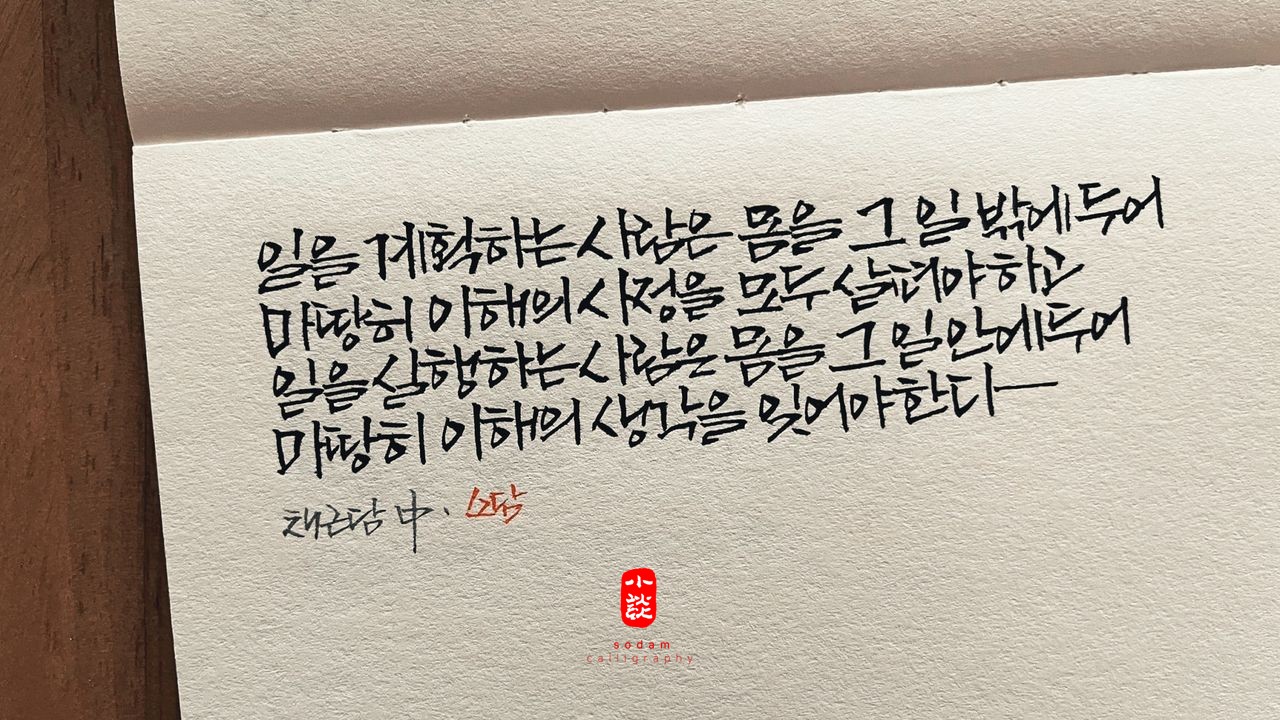 일을 계획하는 사람은 몸을 그 일 밖에 두어
마땅히 이해의 사정을 모두 살펴야 하고
일을 실행하는 사람은 몸을 그 일 안에 두어
마땅히 이해의 생각을 잊어야 한다
채근담 中. 소담
小談
sodam
calligraphy